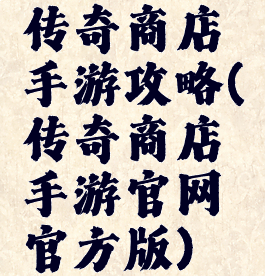 传奇商店
手游攻略(
传奇商店
手游官网
官方版)